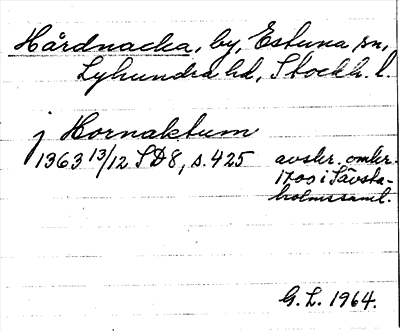 Hårdnacka, by, Estuna sn,
Lyhundra hd, Stockh. l.
j Hornaktum
1363 13/12 SD8, s. 425 avskr. omkr.
1700 i Sävsta-
holmssaml.
G. L. 1964.